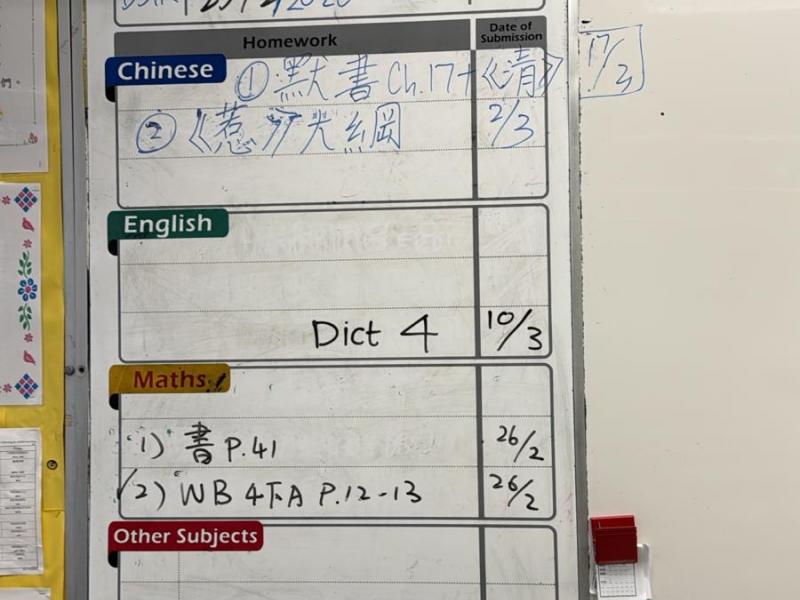 Homework
Date of Submission
Chinese
① 默書 Ch.17+《清》 17/3
② 《惹》大綱 2/3
English
Dict 4 10/3
Maths
1) 書 P.41 26/2
2) WB 4下A P.12-13 26/2
Other Subjects